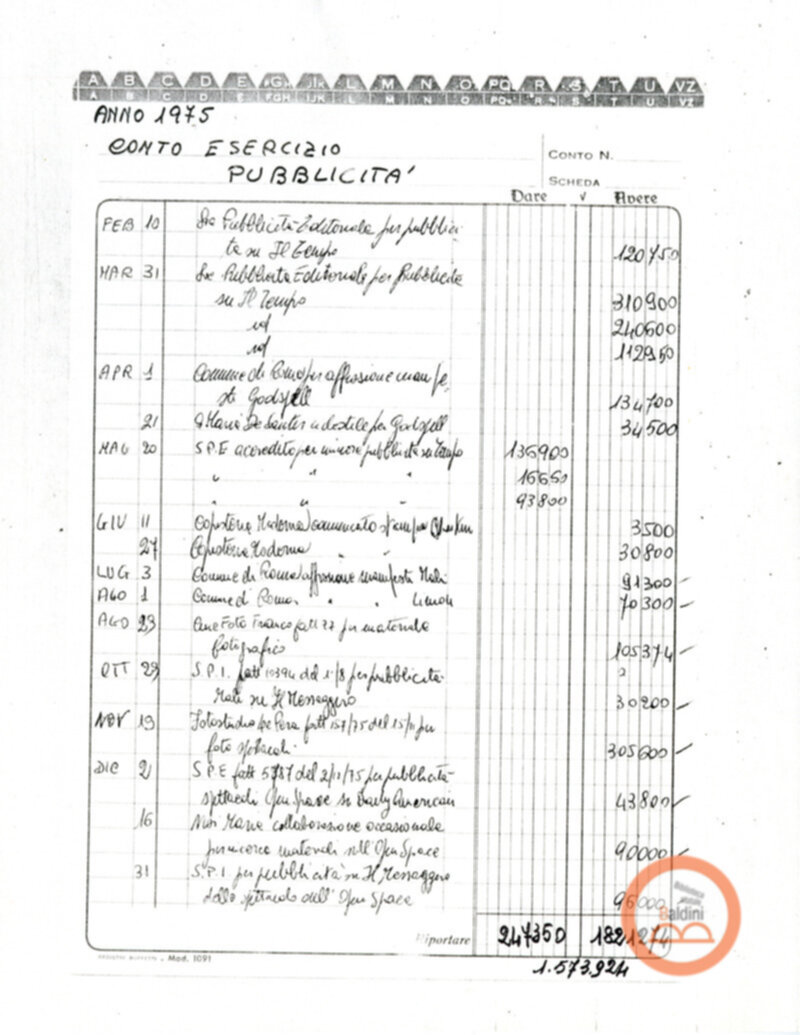 A B C D E FGH IJK L M N O PQ R S T U VZ
A B C D E FGH IJK L M N O PQ R S T U VZ
ANNO 1975
CONTO ESERCIZIO
PUBBLICITA'
CONTO N.
SCHEDA
Dare √ Avere
FEB 10 Pubblicità Editoriale per pubblici-
tà su Il Tempo 120750
MAR 31 Pubblicità Editoriale per Pubblicità
su Il Tempo 310900
id 240600
id 112950
APR 1 Comune di Roma per affissione manife-
sti Godspell 134700
21 Maria De Santis per Godspell 34500
MAG 20 S.P.E accredito per minore pubblicità su Tempo 136900
" " " 16650
" " " 93800
GIU 11 Copisteria Moderna comunicato stampa 3500
27 Copisteria Moderna " " 30800
LUG 3 Comune di Roma affissione manifesti 91300
AGO 1 Comune di Roma " " 70300
AGO 29 Cine Foto Franco fatt 77 per materiale
fotografico 105374
OTT 29 S.P.I. fatt 10394 del 1/8 per pubblicità
su Il Messaggero 30200
NOV 19 Fotostudio fatt 157/75 del 15/11 per
foto spettacoli. 305600
DIC 2 S.P.E fatt 5787 del 2/11/75 per pubblicità
spettacoli Open Space su Daily American 43800
16 Maria collaborazione occasionale
per ricerca materiali sull'Open Space 90000
31 S.P.I. per pubblicità su Il Messaggero
dello spettacolo dell'Open Space 96000
Riportare 247350 1821274
1.573.924
Mod. 1091
Biblioteca
statale
Baldini